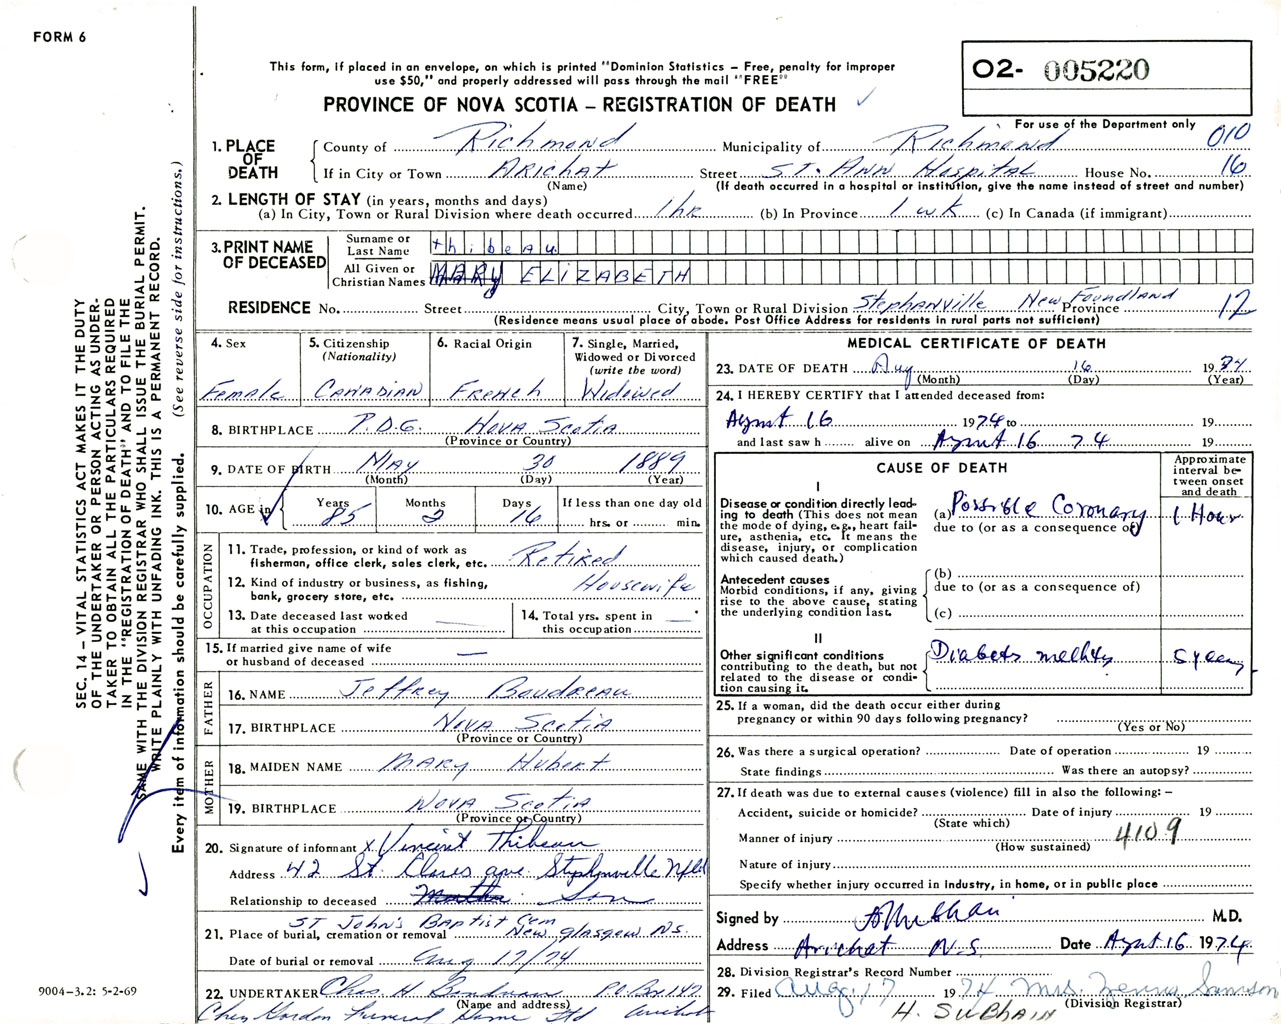 FORM 6
This form, if placed in an envelope, on which is printed "Dominion Statistics – Free, penalty for improper
use $50," and properly addressed will pass through the mail "FREE"
PROVINCE OF NOVA SCOTIA – REGISTRATION OF DEATH
O2- 005220
For use of the Department only
010
1. PLACE OF DEATH
County of Richmond Municipality of Richmond
If in City or Town Arichat Street St. Ann Hospital House No. 16
(Name) (If death occurred in a hospital or institution, give the name instead of street and number)
2. LENGTH OF STAY (in years, months and days)
(a) In City, Town or Rural Division where death occurred 1 hr (b) In Province 1 wk (c) In Canada (if immigrant)
3. PRINT NAME OF DECEASED
Surname or Last Name thibeau
All Given or Christian Names MARY ELIZABETH
RESIDENCE No. Street City, Town or Rural Division Stephanville New Foundland Province 12
(Residence means usual place of abode. Post Office Address for residents in rural parts not sufficient)
4. Sex Female
5. Citizenship (Nationality) Canadian
6. Racial Origin French
7. Single, Married, Widowed or Divorced (write the word) Widowed
8. BIRTHPLACE P.D.G. Nova Scotia
(Province or Country)
9. DATE OF BIRTH May 30 1889
(Month) (Day) (Year)
10. AGE in Years 85 Months 2 Days 16 If less than one day old
hrs. or min.
OCCUPATION
11. Trade, profession, or kind of work as
fisherman, office clerk, sales clerk, etc. Retired
12. Kind of industry or business, as fishing,
bank, grocery store, etc. Housewife
13. Date deceased last worked
at this occupation —
14. Total yrs. spent in
this occupation —
15. If married give name of wife
or husband of deceased —
FATHER
16. NAME Jeffrey Boudreau
17. BIRTHPLACE Nova Scotia
(Province or Country)
MOTHER
18. MAIDEN NAME Mary Hubert
19. BIRTHPLACE Nova Scotia
(Province or Country)
20. Signature of informant x Vincent Thibeau
Address 42 St. Clares ave. Stephenville Nfld
Relationship to deceased Son
St John's Baptist Cem
21. Place of burial, cremation or removal New Glasgow N.S.
Date of burial or removal Aug 17/74
22. UNDERTAKER Chas H P.O. Box 142
(Name and address)
Funeral Home Ltd
MEDICAL CERTIFICATE OF DEATH
23. DATE OF DEATH Aug 16 1974
(Month) (Day) (Year)
24. I HEREBY CERTIFY that I attended deceased from:
August 16 1974 to 19
and last saw h alive on August 16 74 19
CAUSE OF DEATH
Approximate interval between onset and death
I
Disease or condition directly lead-
ing to death (This does not mean
the mode of dying, e.g., heart fail-
ure, asthenia, etc. It means the
disease, injury, or complication
which caused death.)
(a) Possible Coronary 1 Hour
due to (or as a consequence of)
Antecedent causes
Morbid conditions, if any, giving
rise to the above cause, stating
the underlying condition last.
(b)
due to (or as a consequence of)
(c)
II
Other significant conditions
contributing to the death, but not
related to the disease or condi-
tion causing it.
Diabetes 5 years
25. If a woman, did the death occur either during
pregnancy or within 90 days following pregnancy?
(Yes or No)
26. Was there a surgical operation? Date of operation 19
State findings Was there an autopsy?
27. If death was due to external causes (violence) fill in also the following: –
Accident, suicide or homicide? Date of injury 19
(State which)
Manner of injury 4109
(How sustained)
Nature of injury
Specify whether injury occurred in industry, in home, or in public place
Signed by M.D.
Address Arichat N.S. Date August 16 1974
28. Division Registrar's Record Number
29. Filed Aug. 17 1974 Mrs. Samson
(Division Registrar)
H. SUBHAIN
SEC. 14 – VITAL STATISTICS ACT MAKES IT THE DUTY
OF THE UNDERTAKER OR PERSON ACTING AS UNDER-
TAKER TO OBTAIN ALL THE PARTICULARS REQUIRED
IN THE "REGISTRATION OF DEATH" AND TO FILE THE
SAME WITH THE DIVISION REGISTRAR WHO SHALL ISSUE THE BURIAL PERMIT.
WRITE PLAINLY WITH UNFADING INK. THIS IS A PERMANENT RECORD.
Every item of information should be carefully supplied. (See reverse side for instructions.)
9004-3.2: 5-2-69